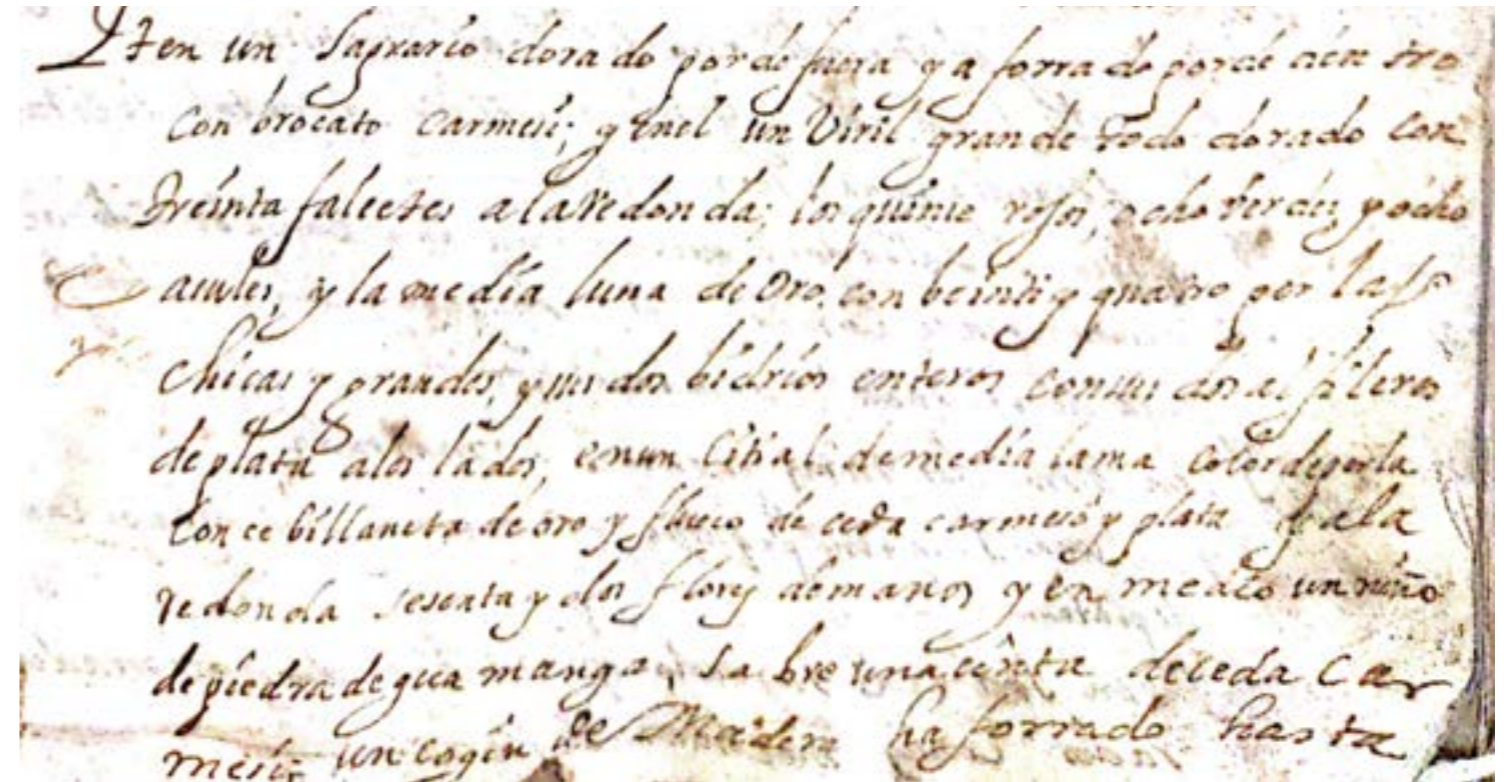 Iten un Sagrario dorado por de fuera y a forrado por de dentro
Con brocato Carmesi; y en el un Viril grande todo dorado con
treinta falcetes a la redonda; los quinse rojos, ocho verdes, y ocho
asules, y la media luna de Oro, con beinti y quatro perlass
chicas y grandes, y sus dos bidrios enteros con sus dos alfileres
de plata a los lados, en un Citial de media lama color de perla
con cebillaneta de oro y flueco de ceda carmesi y plata y a la
redonda sesenta y dos flores de manos y en medio un niño
de piedra de gua manga, sobre una cinta de ceda Car
mesi; un cogin de Madera forrado hasta